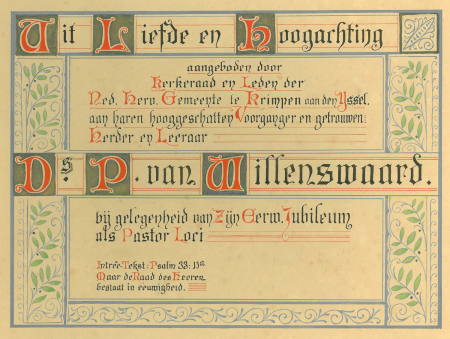 Uit Liefde en Hoogachting
aangeboden door
Kerkeraad en Leden der
Ned. Herv. Gemeente te Krimpen aan den Yssel,
aan haren hooggeschatten Voorganger en getrouwen
Herder en Leeraar
Ds. P. van Willenswaard.
bij gelegenheid van Zijn Eerw. Jubileum
als Pastor Loci
Intrêe-Tekst: Psalm 33: 11a
Maar de Raad des Heeren
bestaat in eeuwigheid.